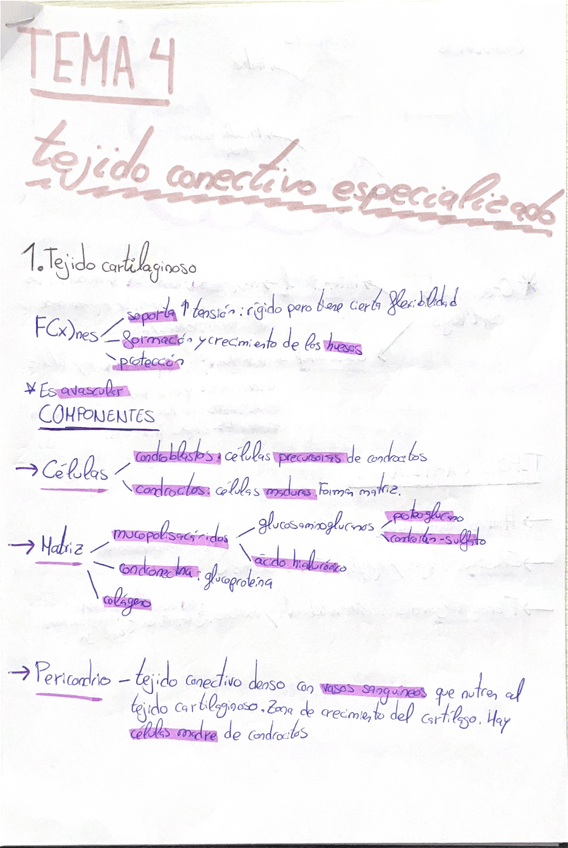 TEMA 4
tejido conectivo especializado
1. Tejido cartilaginoso
F(x)nes
soporta ↑ tensión: rígido pero tiene cierta flexibilidad
formación y crecimiento de los huesos
protección
* Es avascular
COMPONENTES
→ Células
condroblastos: células precursoras de condrocitos
condrocitos: células maduras. Forman matriz.
→ Matriz
mucopolisacáridos
glucosaminoglucanos
condoitín-sulfato
ácido hialurónico
condronectina: glucoproteína
colágeno
→ Pericondrio - tejido conectivo denso con vasos sanguíneos que nutren al
tejido cartilaginoso. Zona de crecimiento del cartílago. Hay
células madre de condrocitos